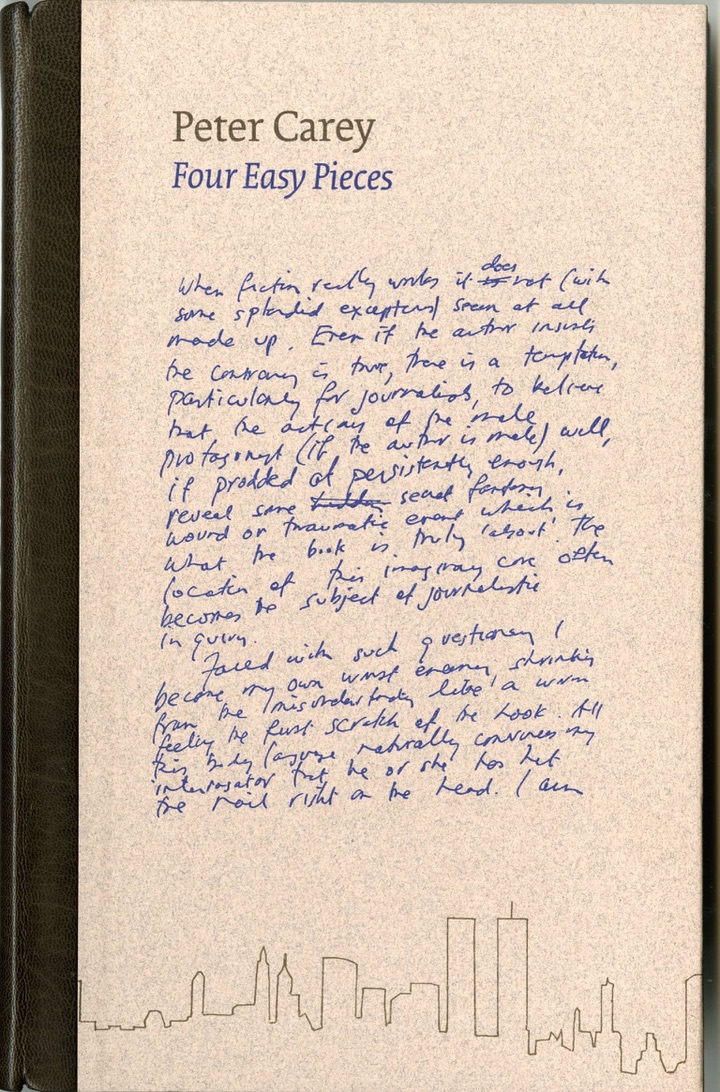 Peter Carey
Four Easy Pieces
does
When fiction really works it is not (with
some splendid exceptions) seem at all
made up. Even if the author insists
the contrary is true, there is a temptation,
particularly for journalists, to believe
that the actions of the male
protagonist (if the author is male) will,
if prodded at persistently enough,
reveal some hidden secret fantasy
wound or traumatic event which is
what the book is truly 'about'. The
location of this imaginary core often
becomes the subject of journalistic
inquiry.
Faced with such questioning I
become my own worst enemy, shrinking
from the misunderstanding like a worm
feeling the first scratch of the hook. All
this body language naturally convinces my
interrogator that he or she has hit
the nail right on the head. I am